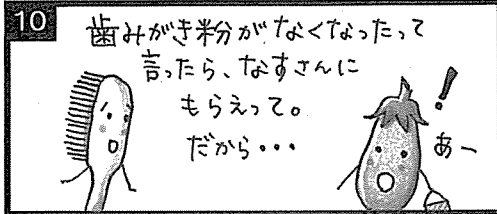 10
歯みがき粉がなくなったって
言ったら、なすさんに
もらえって。
だから・・・
!
あー